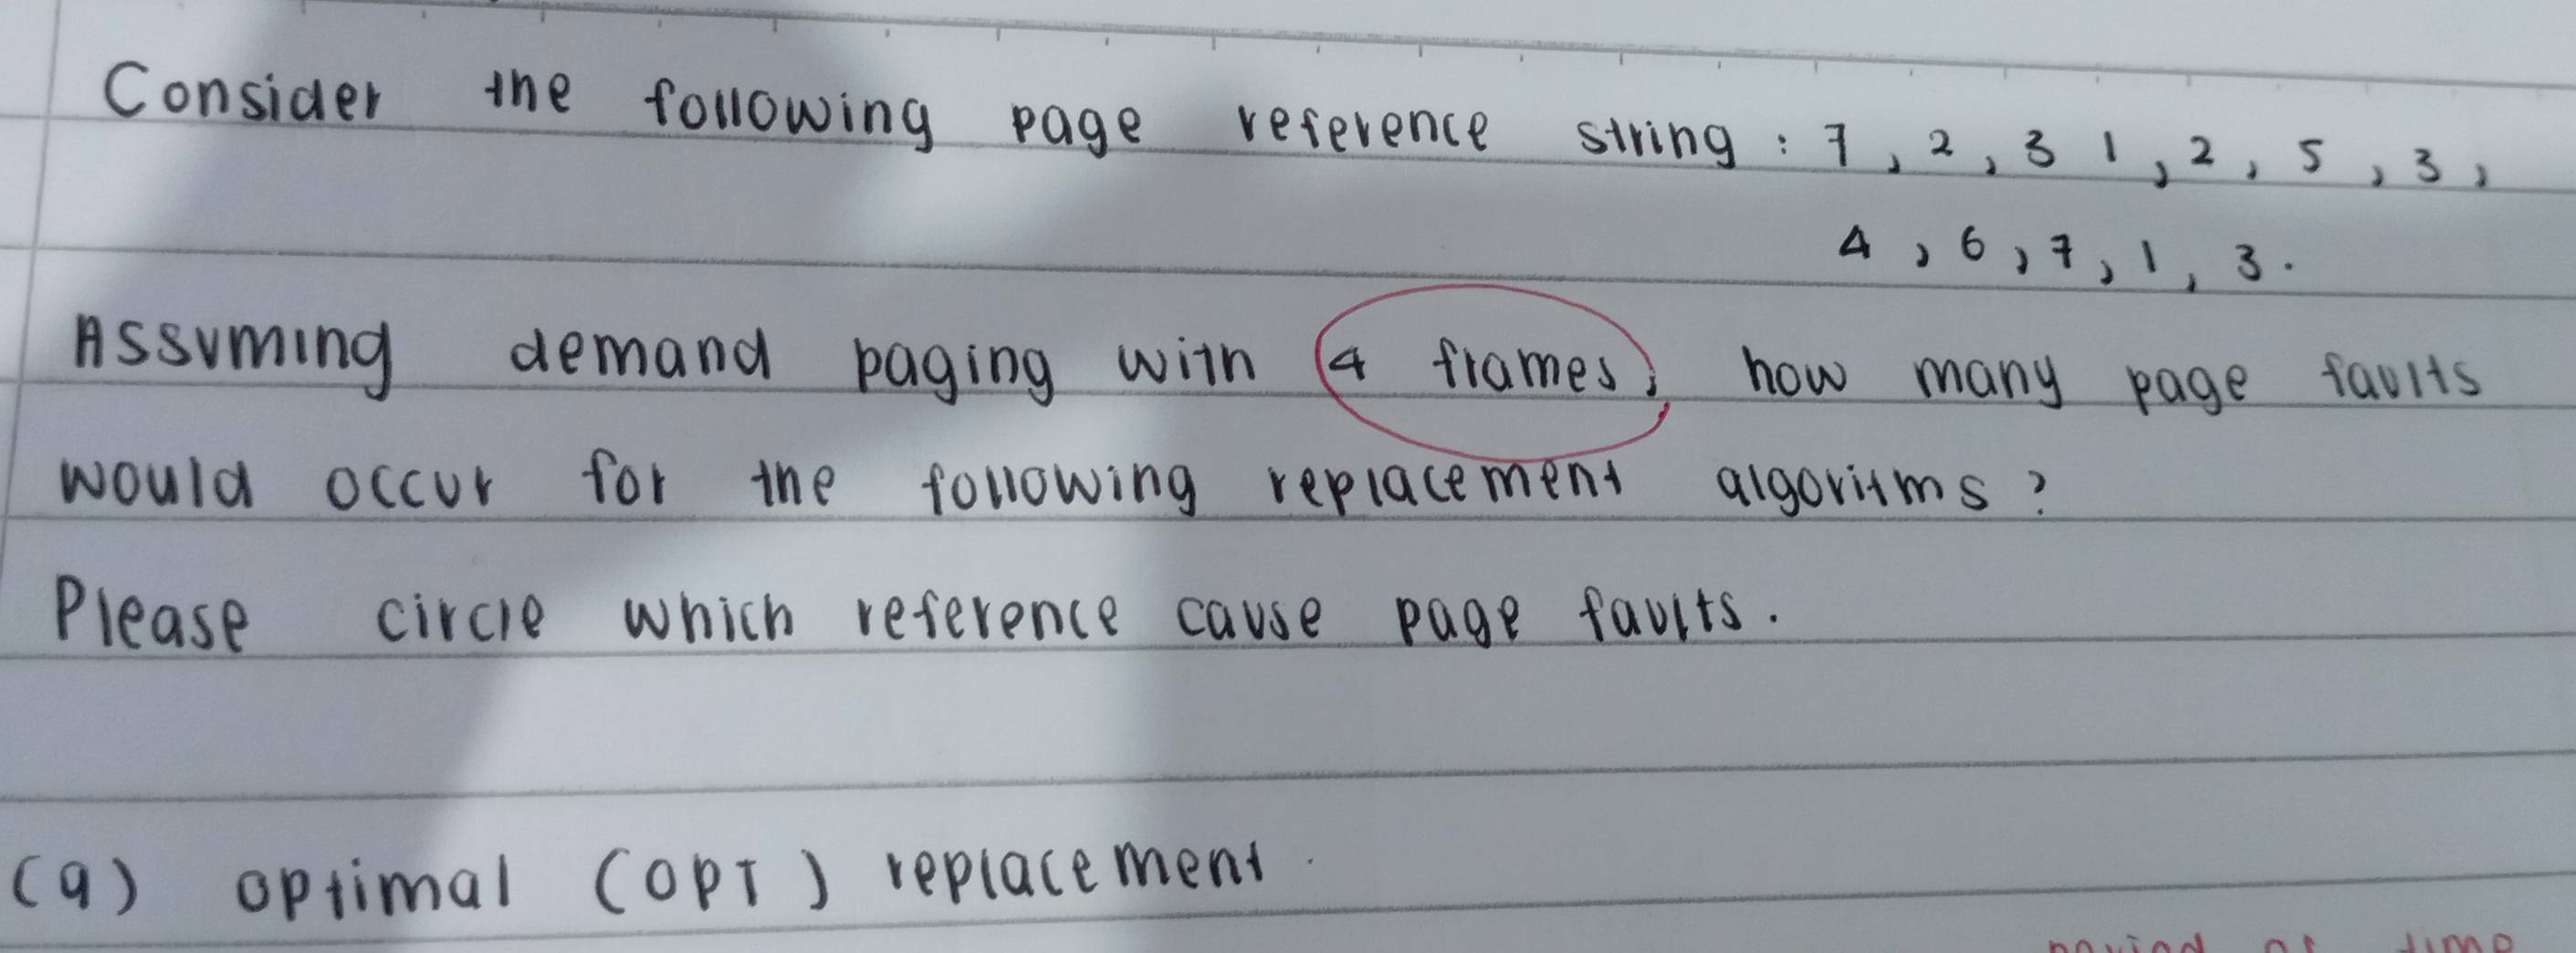 Consider the following page reference string : 7, 2, 3 1, 2, 5, 3,
4, 6, 7, 1, 3.
Assuming demand paging with 4 frames, how many page faults
would occur for the following replacement algoritms?
Please circle which reference cause page faults.
(a) optimal (OPT) replacement.